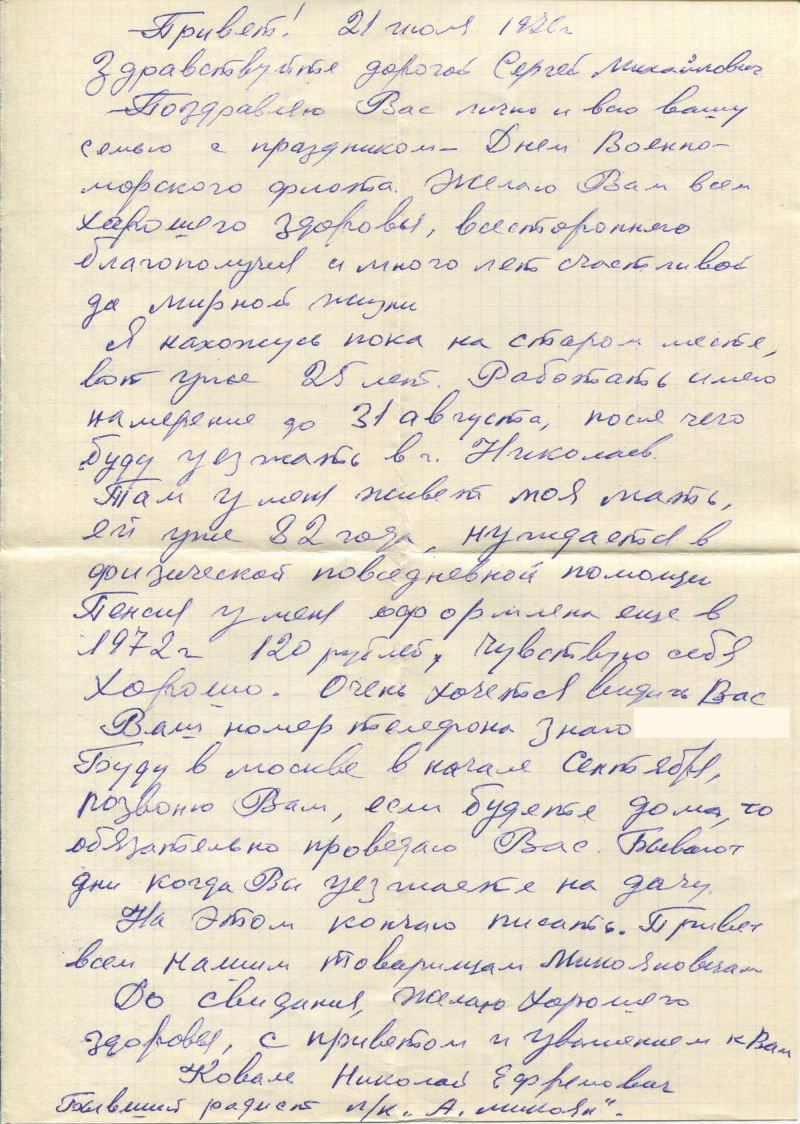 Привет! 21 июля 1976г
Здравствуйте дорогой Сергей Михайлович
Поздравляю Вас лично и всю вашу
семью с праздником – Днем Военно-
морского флота. Желаю Вам всем
хорошего здоровья, всестороннего
благополучия и много лет счастливой
да мирной жизни
Я нахожусь пока на старом месте,
вот уже 25 лет. Работать имею
намерение до 31 августа, после чего
буду уезжать в г. Николаев.
Там у меня живет моя мать,
ей уже 82 года, нуждается в
физической повседневной помощи
Пенсия у меня оформлена еще в
1972г 120 рублей, чувствую себя
хорошо. Очень хочется видить Вас
Ваш номер телефона знаю
Буду в москве в начале Сентября,
позвоню Вам, если будете дома, то
обязательно проведаю Вас. Бывают
дни когда Вы уезжаете на дачу.
На этом кончаю писать. Привет
всем нашим товарищам Микояновцам
До свидания, желаю хорошего
здоровья, с приветом и уважением к Вам
Коваль Николай Ефремович
Бывший радист л/к „А. Микоян“.